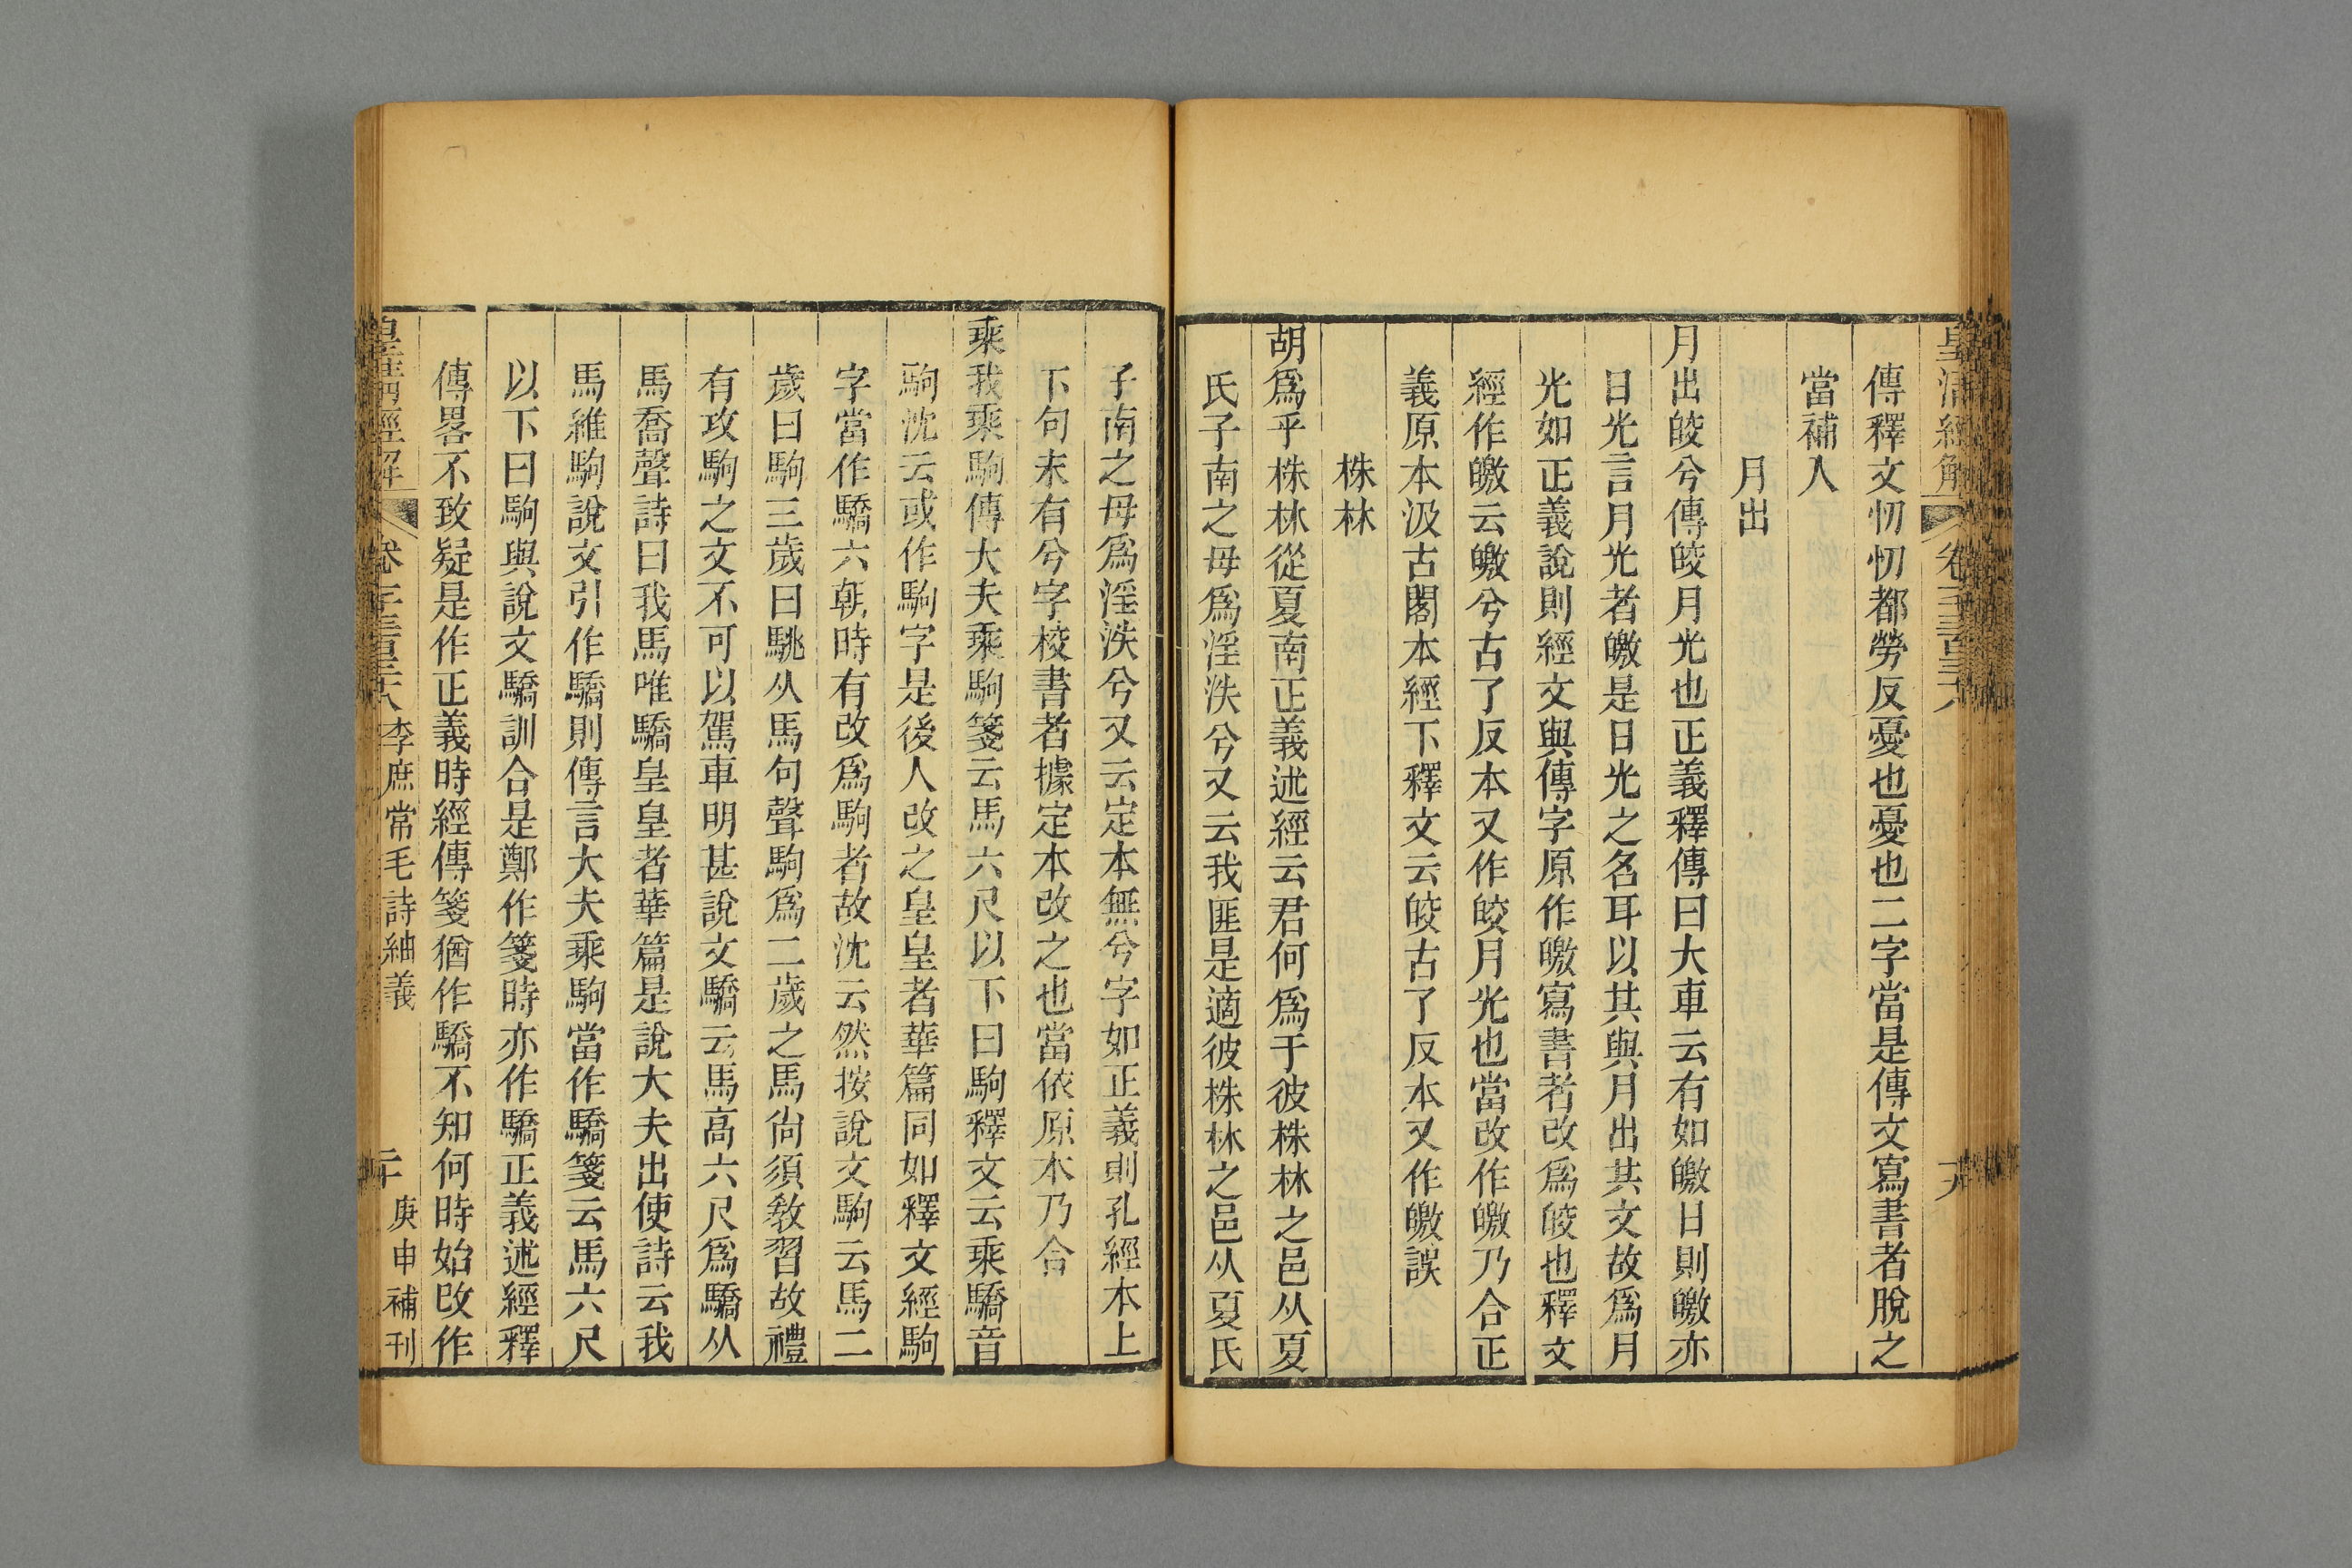 皇清經解
卷一千三百三十六
十九
傳釋文忉忉都勞反憂也憂也二字當是傳文寫書者脫之
當補人
月出
月出皎兮傳皎月光也正義釋傳曰大車云有如皦日則皦亦
日光言月光者皦是日光之名耳以其與月出共文故爲月
光如正義說則經文與傳字原作皦寫書者改爲皎也釋文
經作皦云皦兮古了反本又作皎月光也當改作皦乃合正
義原本汲古閣本經下釋文云皎古了反本又作皦誤
株林
胡爲乎株林從夏南正義述經云君何爲于彼株林之邑从夏
氏子南之母爲淫泆兮又云我匪是適彼株林之邑从夏氏
子南之母爲淫泆兮又云定本無兮字如正義則孔經本上
下句末有兮字校書者據定本改之也當依原本乃合
乘我乘駒傳大夫乘駒箋云馬六尺以下曰駒釋文云乘驕音
駒沈云或作駒字是後人改之皇皇者華篇同如釋文經駒
字當作驕六朝時有改爲駒者故沈云然按說文駒云馬二
歲曰駒三歲曰駣从馬句聲駒爲二歲之馬尙須敎習故禮
有攻駒之文不可以駕車明甚說文驕云馬高六尺爲驕从
馬喬聲詩曰我馬唯驕皇皇者華篇是說大夫出使詩云我
馬維駒說文引作驕則傳言大夫乘駒當作驕箋云馬六尺
以下曰駒與說文驕訓合是鄭作箋時亦作驕正義述經釋
傳畧不致疑是作正義時經傳箋猶作驕不知何時始改作
皇淸經解
李庶常毛詩紬義
二十
庚申補刊